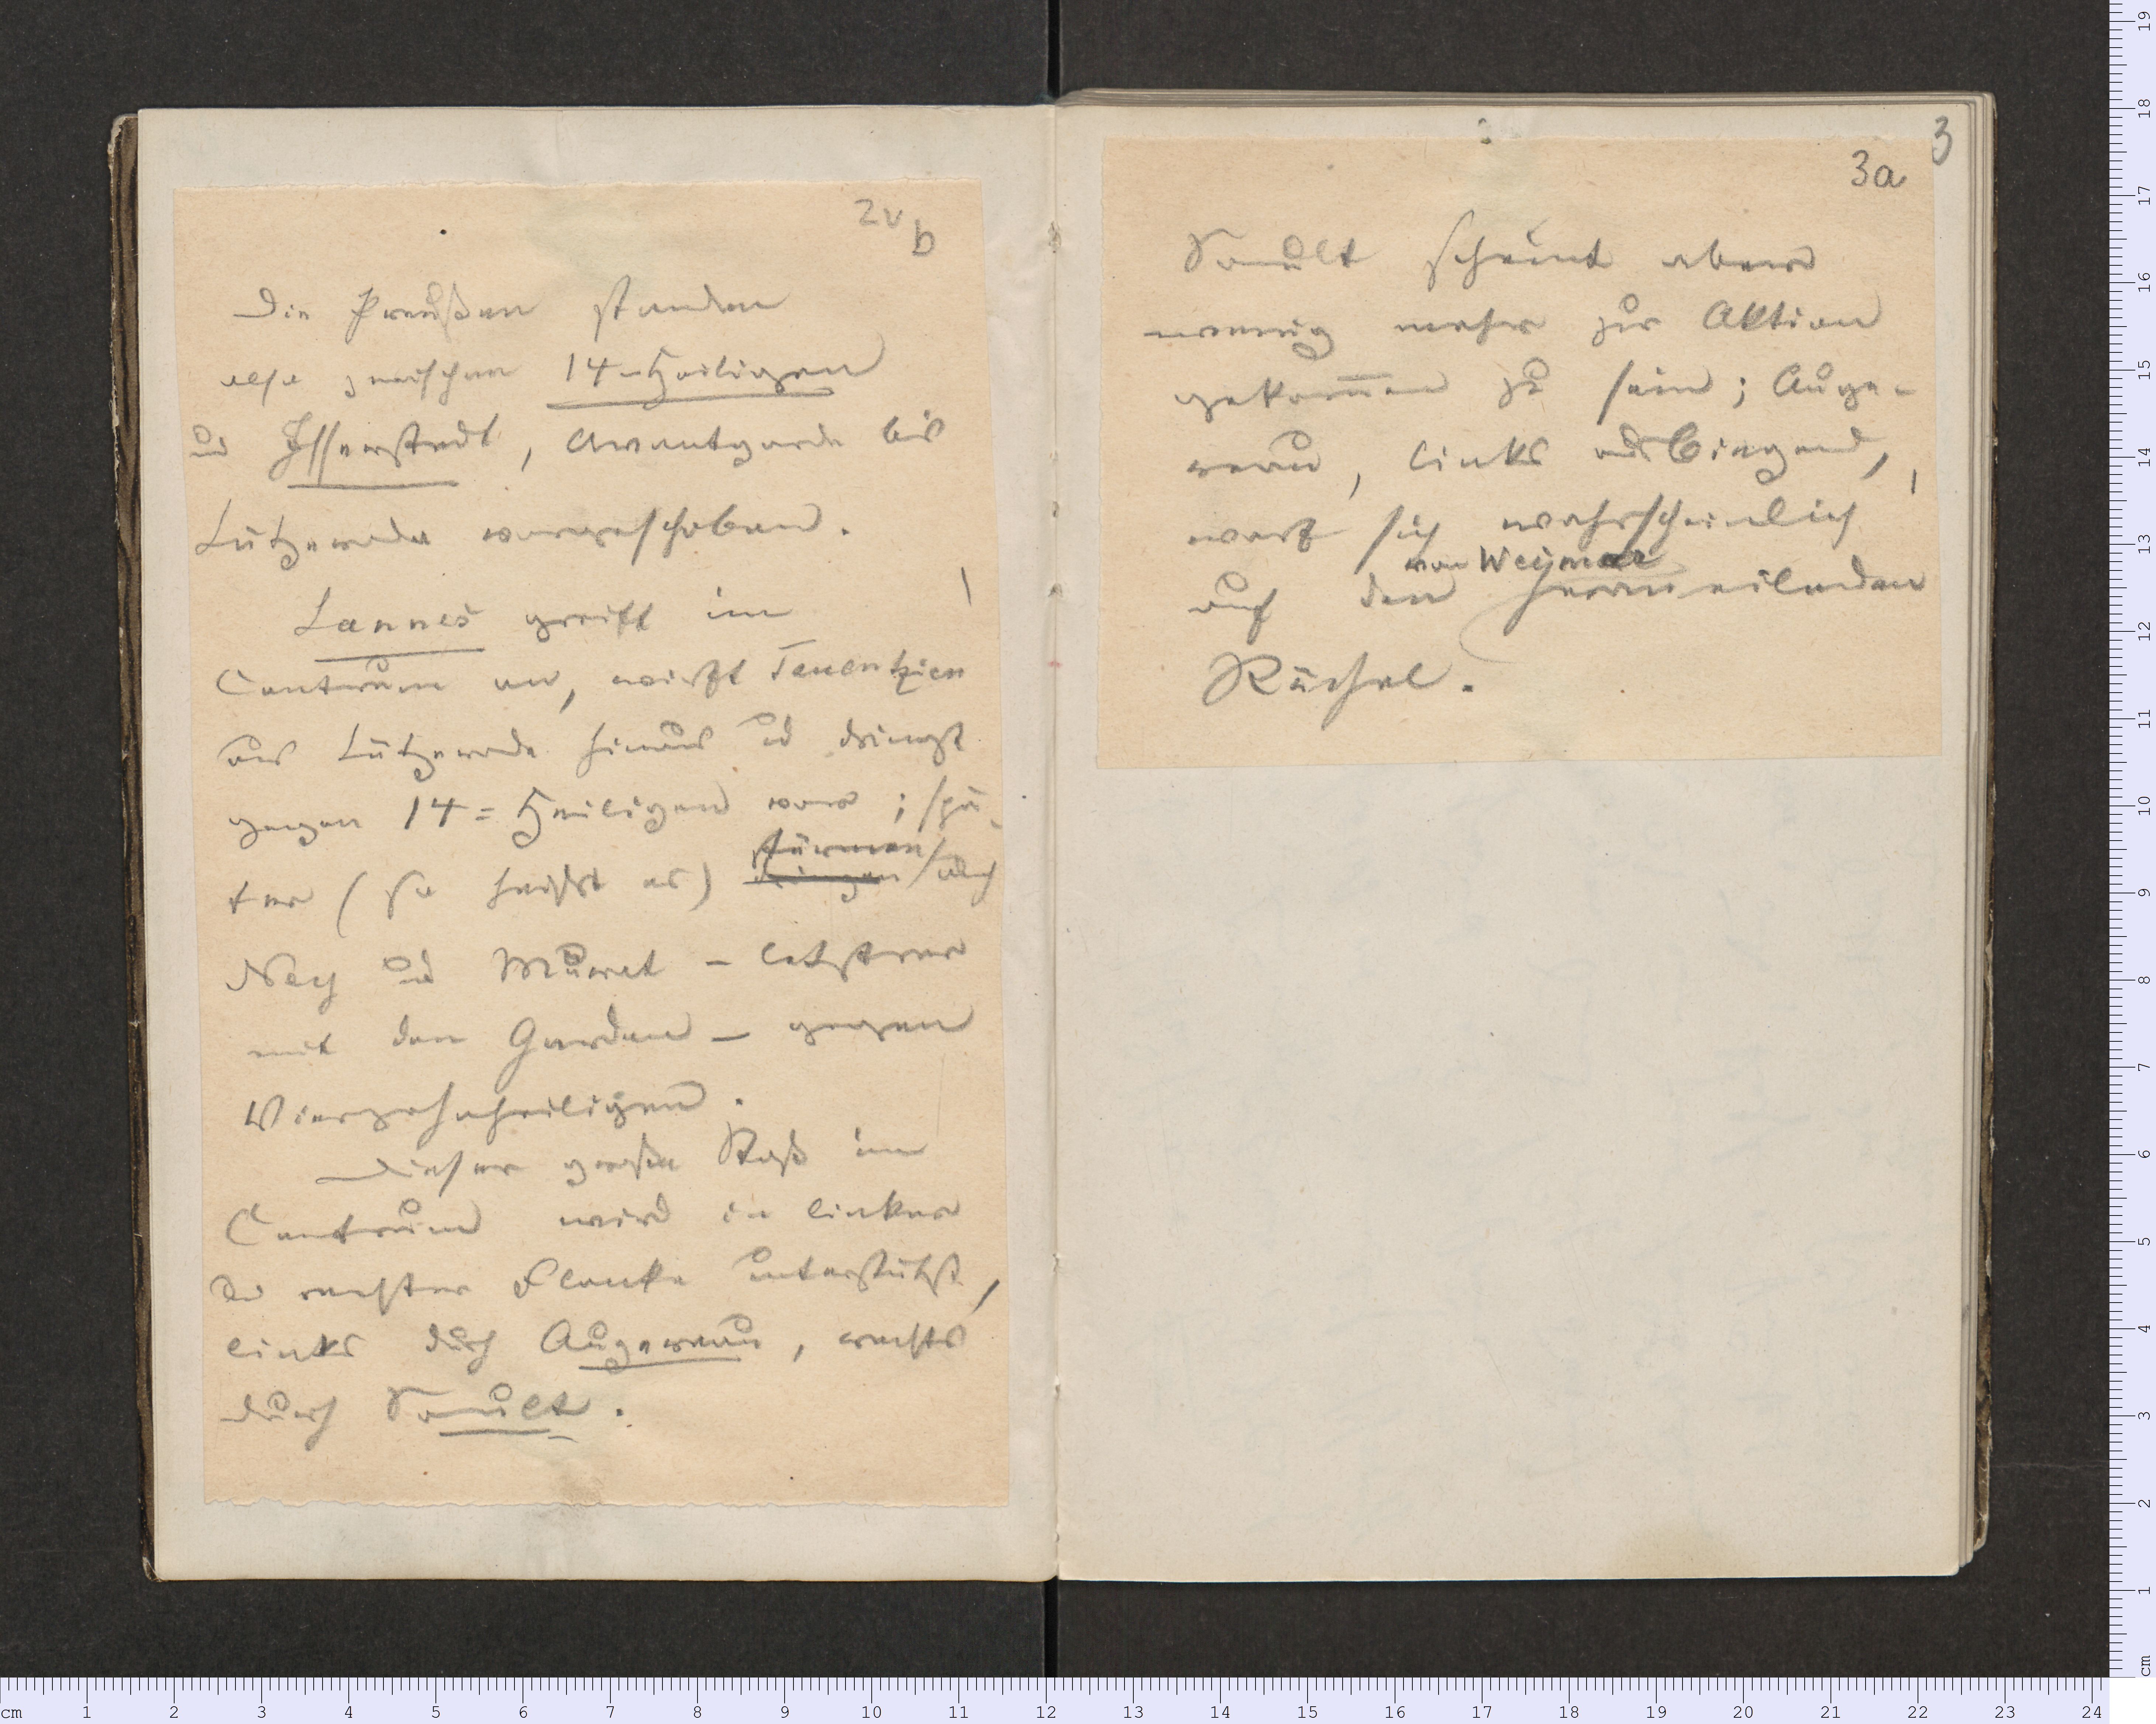 2v
b
Die Preußen standen
also zwischen 14-Heiligen
und Isserstedt, Avantgarde bis
Lützeroda vorgeschoben.
Lannes greift im
Centrum an, wirft Tauentzien
aus Lützeroda hinaus und dringt
gegen 14=Heiligen vor; spä-
ter (so heißt es) dringen stürmen auch
Ney und Murat – letztrer
mit den Garden – gegen
Vierzehnheiligen.
Dieser große Stoß im
Centrum wird in linker
und rechter Flanke unterstützt,
links durch Augereau, rechts
durch Soult.
3
3a
Soult scheint aber
wenig mehr zur Aktion
gekom̄en zu sein; Auge-
reau, links ausbiegend,
warf sich wahrscheinlich
von Weymar
auf den heraneilenden
Rüchel.